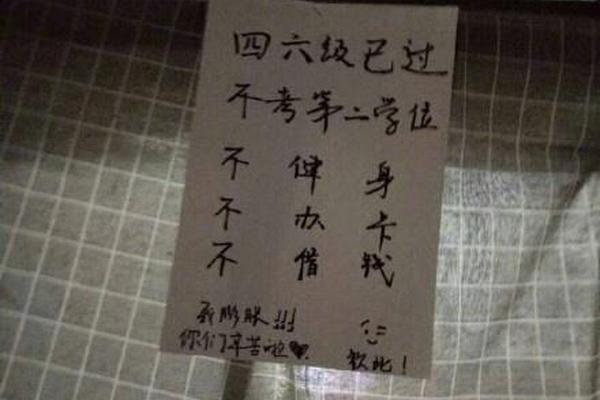 四六级已过
不考第二学位
不健身
不办卡
不借钱
我膨胀!!!
你们辛苦啦♥.
钦此!